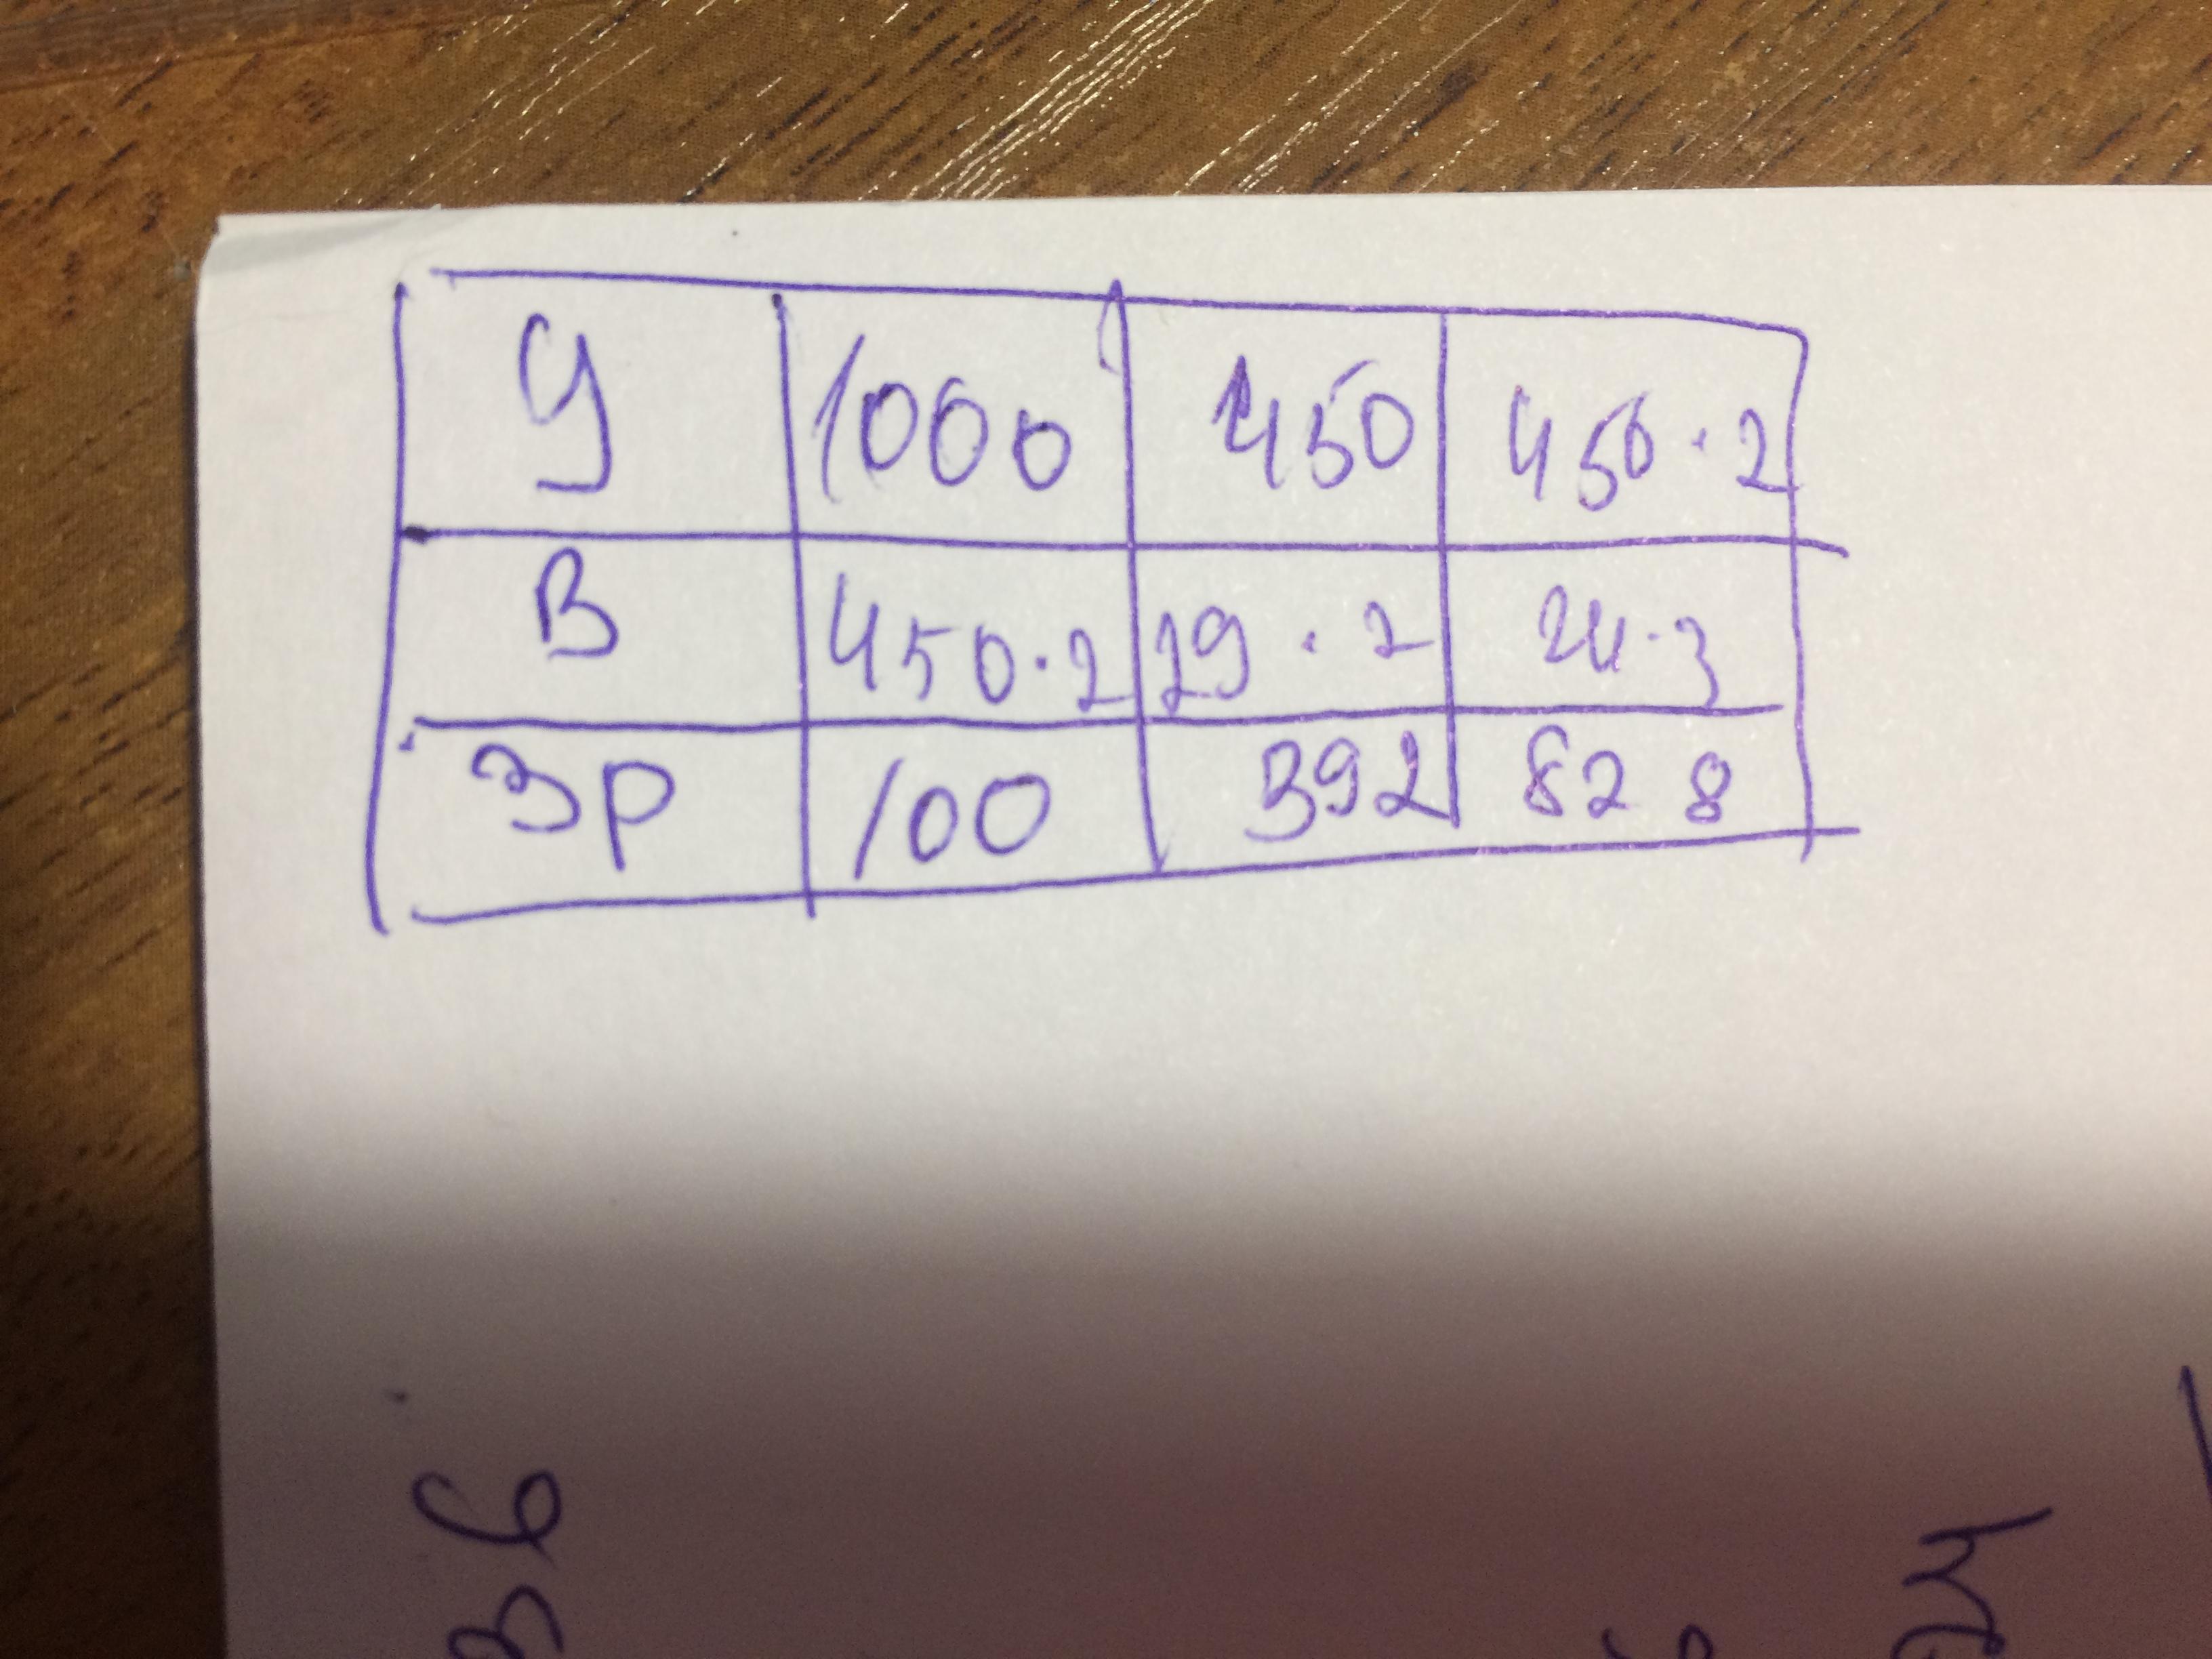 У 1000 450 450·2
В 450·2 29·2 24·3
ЗР 100 392 828